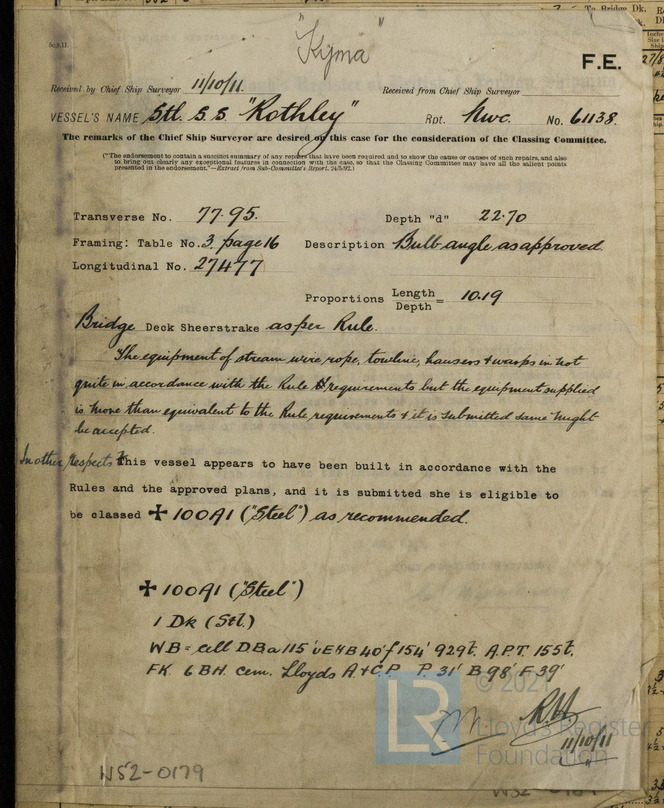 "Kyma"
F.E.
Received by Chief Ship Surveyor 11/10/11. Received from Chief Ship Surveyor
VESSEL'S NAME Stl. S.S. "Rothley" Rpt. Nwc. No. 61138.
The remarks of the Chief Ship Surveyor are desired on this case for the consideration of the Classing Committee.
("The endorsement to contain a succinct summary of any repairs that have been required and to show the cause or causes of such repairs, and also
to bring out clearly any exceptional features in connection with the case, so that the Classing Committee may have all the salient points
presented in the endorsement."—Extract from Sub-Committee's Report, 24/5/92.)
Transverse No. 77.95. Depth "d" 22.70
Framing: Table No. 3. page 16 Description Bulb angle as approved
Longitudinal No. 27477
Proportions Length
Depth = 10.19
Bridge Deck Sheerstrake as per Rule.
The equipment of stream wire rope, towline, hausers & warps is not
quite in accordance with the Rule requirements but the equipment supplied
is more than equivalent to the Rule requirements & it is submitted same might
be accepted.
In other respects this vessel appears to have been built in accordance with the
Rules and the approved plans, and it is submitted she is eligible to
be classed ✠ 100A1 ("Steel") as recommended.
✠ 100A1 ("Steel")
1 Dk (Stl.)
WB = cell DBa 115' uE&B 40' f 154' 929t. A.P.T. 155t.
FK. 6 BH. cem. Lloyds A.&C.P. P. 31' B 98' F 39'
11/10/11
© 2021
LR
Lloyd's Register
Foundation
W52-0179